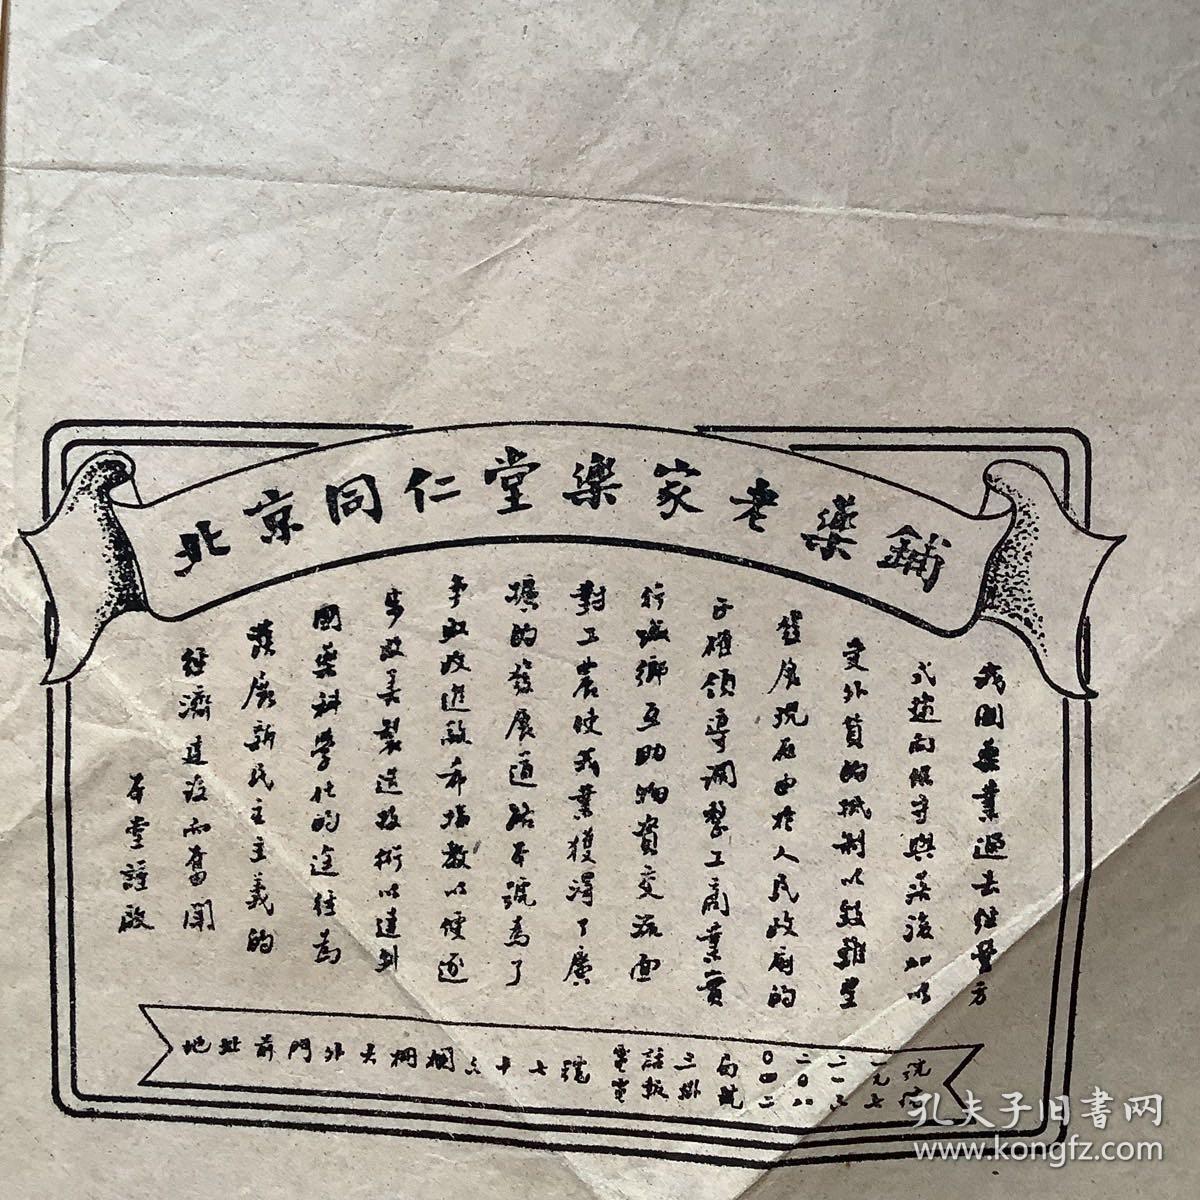 北京同仁堂樂家老藥鋪
我國藥業過去經營方
式趨向保守與落後加以
受外貨的抵制以致難望
發展現在由於人民政府的
正確領導調整工商業實
行城鄉互助物資交流面
對工農使我業獲得了廣
擴的發展道路本號為了
爭取改進啟希指教以便逐
步改善製造技術以達到
國藥科學化的途徑為
發展新民主主義的
經濟建設而奮鬥
本堂謹啟
地址前門外大柵欄六十七號
電話三局
電報掛號
孔夫子旧書网
www.kongfz.com